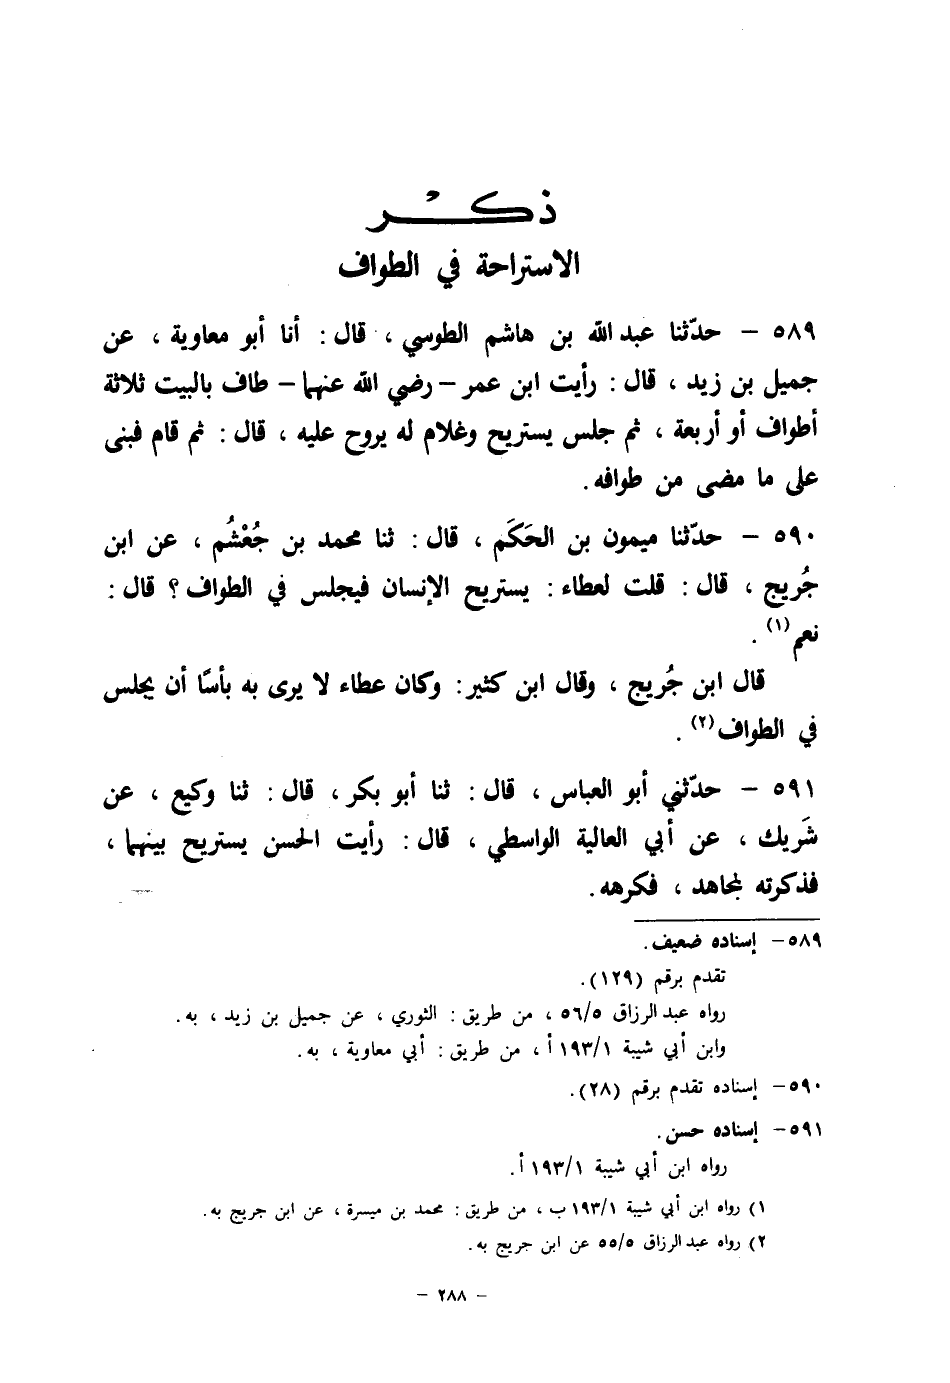 ذكر
الاستراحة في الطواف
٥٨٩ – حدّثنا عبد الله بن هاشم الطوسي ، قال : أنا أبو معاوية ، عن
جميل بن زيد ، قال : رأيت ابن عمر – رضي الله عنهما – طاف بالبيت ثلاثة
أطواف أو أربعة ، ثم جلس يستريح وغلام له يروح عليه ، قال : ثم قام فبنى
على ما مضى من طوافه .
٥٩٠ – حدّثنا ميمون بن الحَكَم ، قال : ثنا محمد بن جُعْشُم ، عن ابن
جُريج ، قال : قلت لعطاء : يستريح الإنسان فيجلس في الطواف ؟ قال :
نعم (١) .
قال ابن جُريج ، وقال ابن كثير : وكان عطاء لا يرى به بأسًا أن يجلس
في الطواف (٢) .
٥٩١ – حدّثني أبو العباس ، قال : ثنا أبو بكر ، قال : ثنا وكيع ، عن
شَريك ، عن أبي العالية الواسطي ، قال : رأيت الحسن يستريح بينهما ،
فذكرته لمجاهد ، فكرهه .
٥٨٩ – إسناده ضعيف .
تقدم برقم (١٢٩) .
رواه عبد الرزاق ٥٦/٥ ، من طريق : الثوري ، عن جميل بن زيد ، به .
وابن أبي شيبة ١٩٣/١ أ ، من طريق : أبي معاوية ، به .
٥٩٠ – إسناده تقدم برقم (٢٨) .
٥٩١ – إسناده حسن .
رواه ابن أبي شيبة ١٩٣/١ أ .
١) رواه ابن أبي شيبة ١٩٣/١ ب ، من طريق : محمد بن ميسرة ، عن ابن جريج به .
٢) رواه عبد الرزاق ٥٥/٥ عن ابن جريج به .
– ٢٨٨ –